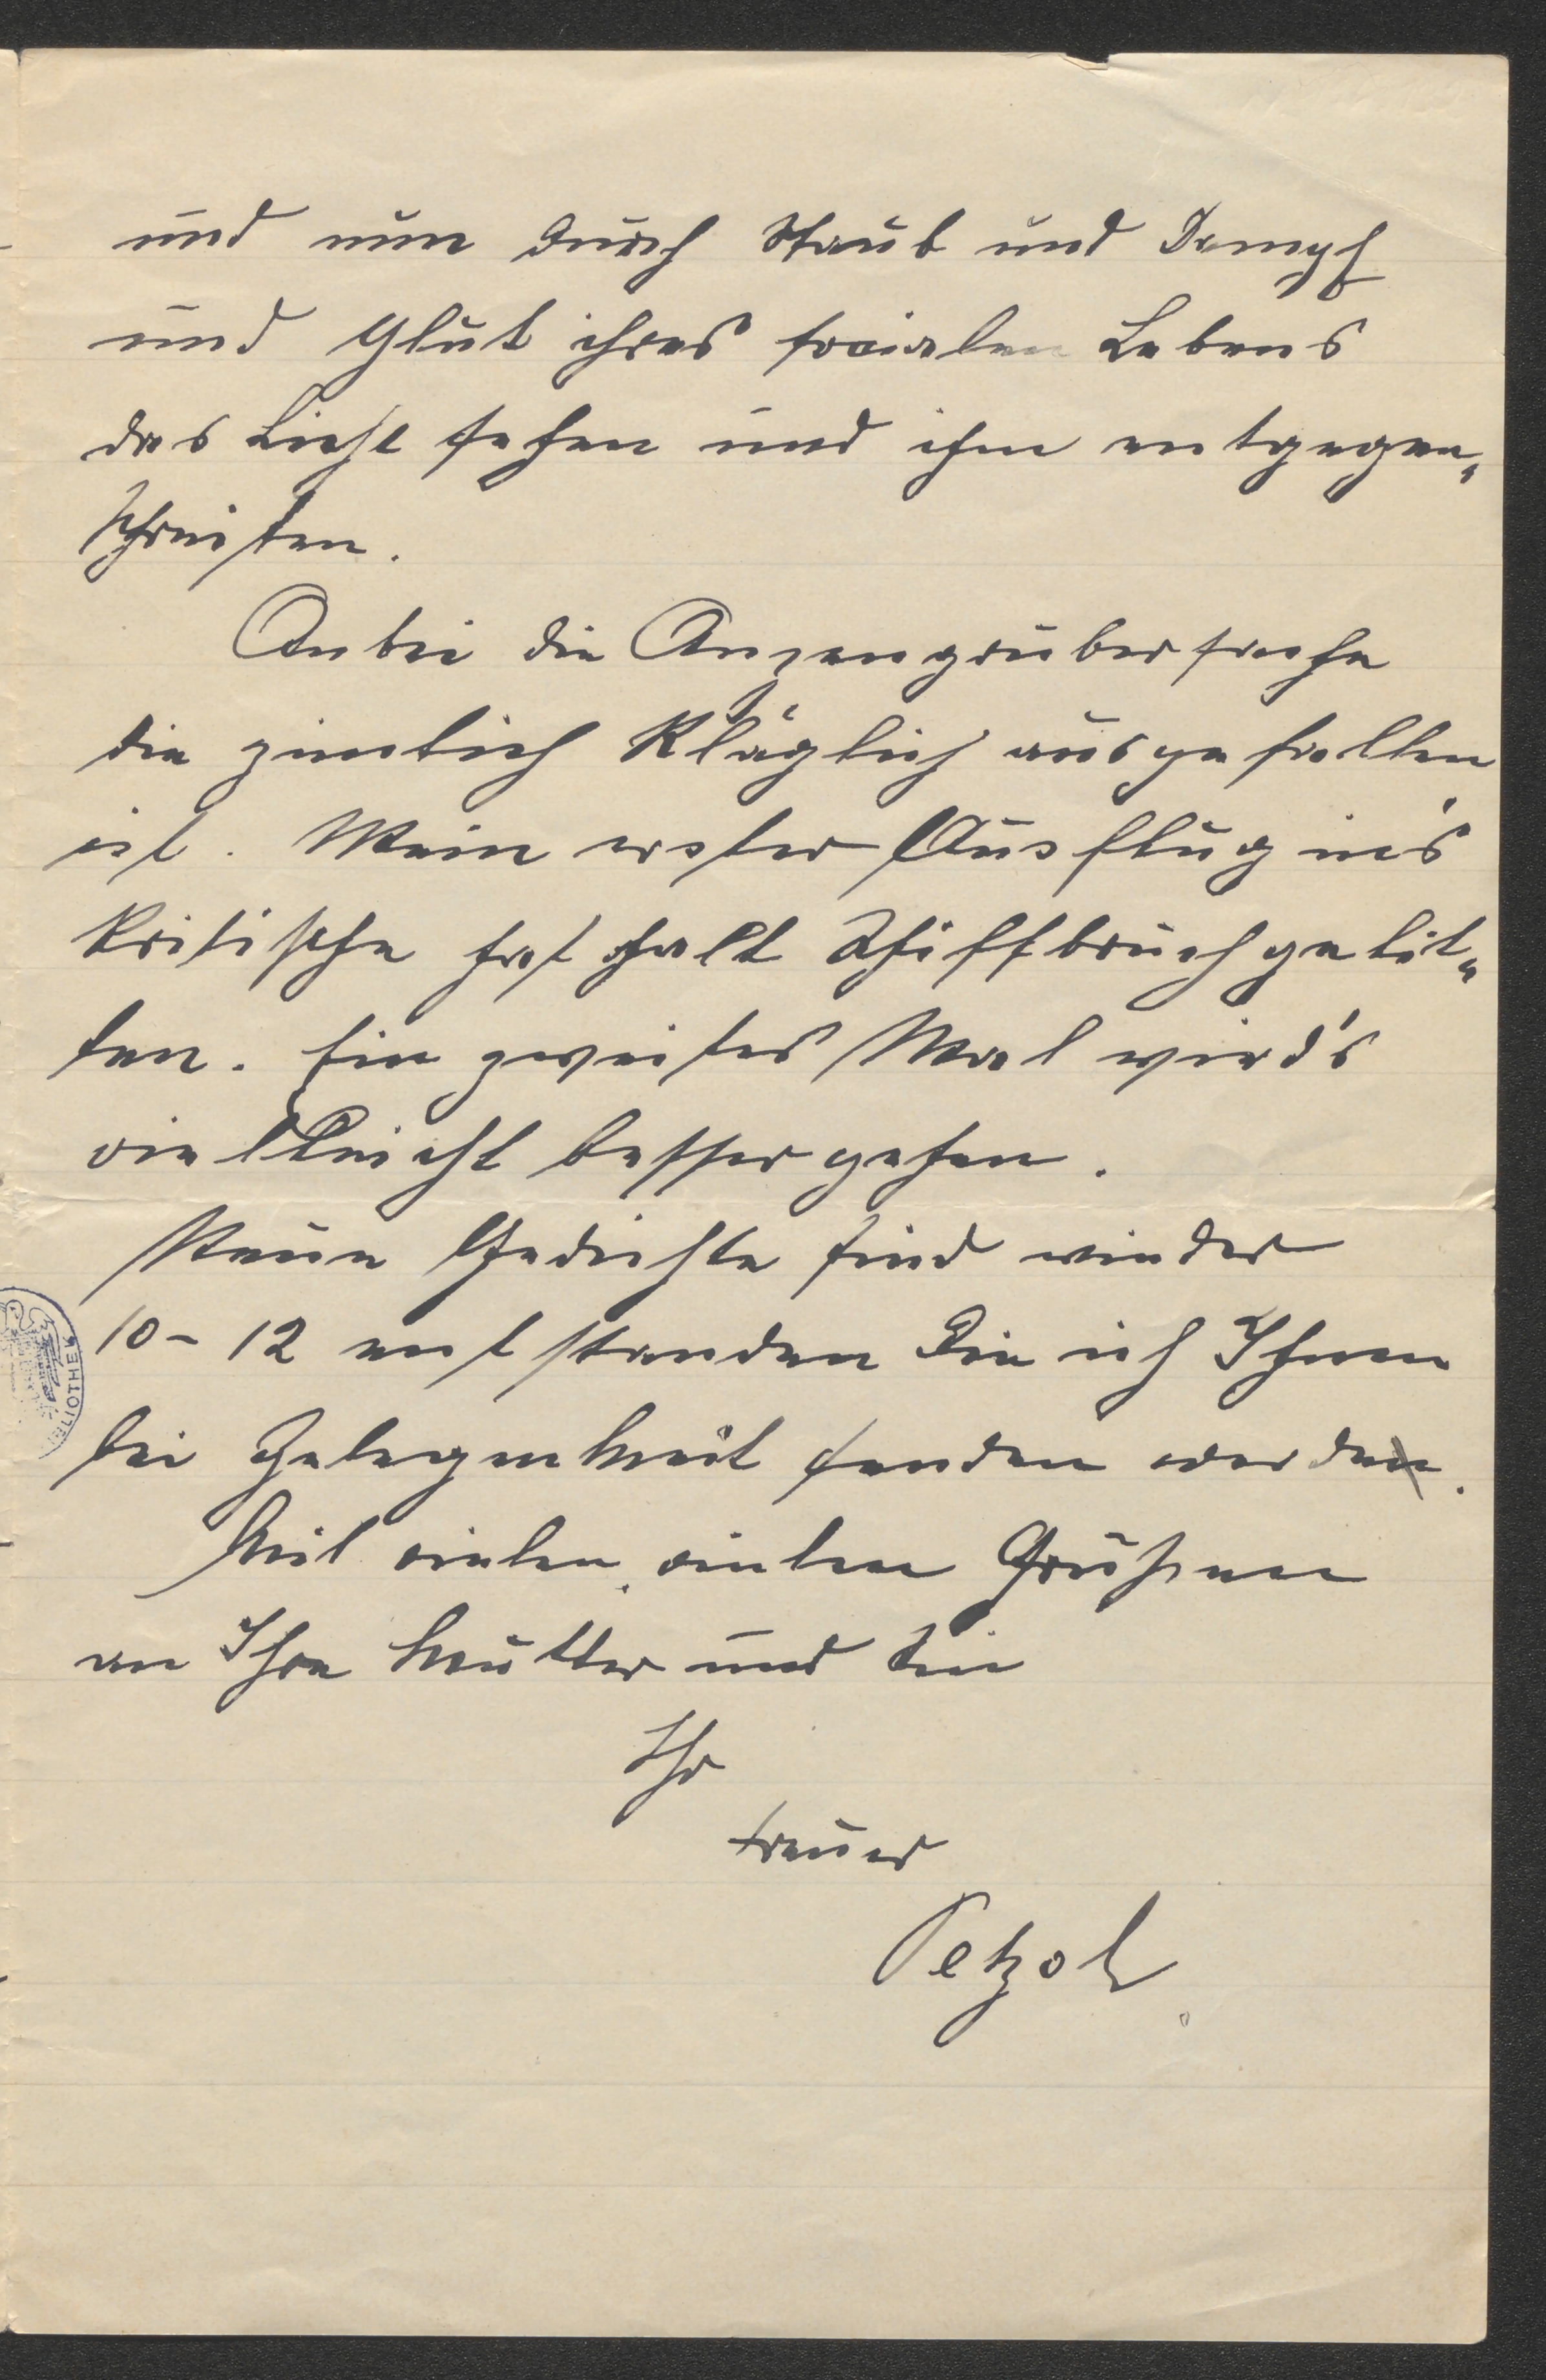 und nun durch Staub und Dampf
und Glut ihres sozialen Lebens
das Licht sehen und ihm entgegen„
schreiten.
Anbei die Anzengrubersache
die zimlich kläglich ausgefallen
ist. Mein erster Ausflug in's
kritische hat halt Schiffbruch gelit„
ten. Ein zweites Mal wird's
vielleicht besser gehen.
Neue Gedichte sind wieder
10 - 12 entstanden die ich Ihnen
bei Gelegenheit senden werde.
Mit vielen, vielen Grüßen
an Ihre Mutter und Sie
Ihr
treuer
Petzold
BIBLIOTHEK